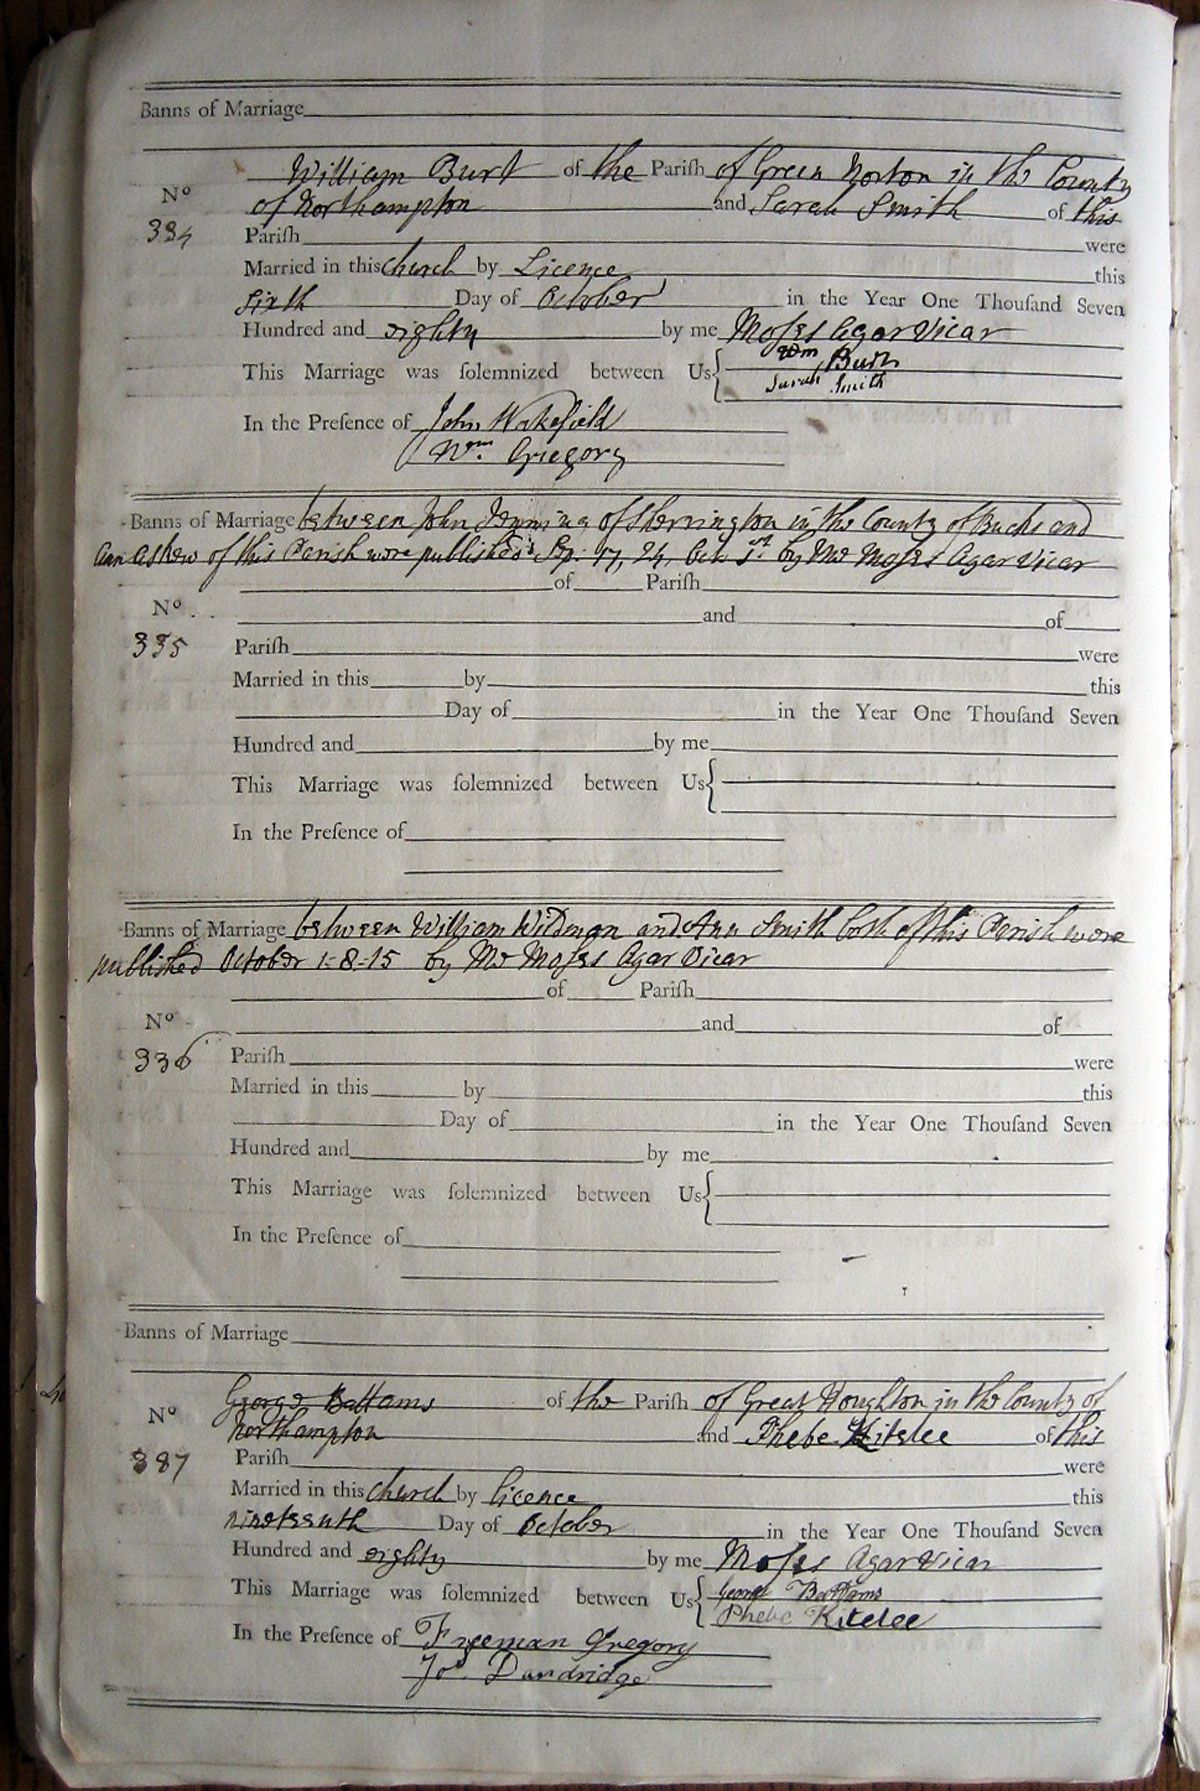 Banns of Marriage
William Burt of the Pariſh of Green Norton in the County
Nº
of Northampton and Sarah Smith of this
334
Pariſh were
Married in this church by Licence this
sixth Day of October in the Year One Thouſand Seven
Hundred and eighty by me Moſes Agar Vicar
This Marriage was ſolemnized between Us Wm Burt
Sarah Smith
In the Preſence of John Wakefield
Wm. Gregory
Banns of Marriage between John Jenning of Sherrington in the County of Bucks and
Ann Askew of this Parish were published Sep. 17, 24, Oct 1st by Me Moſes Agar Vicar
of Pariſh
Nº
and of
335
Pariſh were
Married in this by this
Day of in the Year One Thouſand Seven
Hundred and by me
This Marriage was ſolemnized between Us
In the Preſence of
Banns of Marriage between William Wildman and Ann Smith both of this Parish were
published October 1-8-15 by Me Moſes Agar Vicar
of Pariſh
Nº
and of
336
Pariſh were
Married in this by this
Day of in the Year One Thouſand Seven
Hundred and by me
This Marriage was ſolemnized between Us
In the Preſence of
Banns of Marriage
George Battams of the Pariſh of Great Houghton in the County of
Nº
Northampton and Phebe Kitelee of this
337
Pariſh were
Married in this church by licence this
nineteenth Day of October in the Year One Thouſand Seven
Hundred and eighty by me Moſes Agar Vicar
This Marriage was ſolemnized between Us George Battams
Phebe Kitelee
In the Preſence of Freeman Gregory
Jos Dandridge